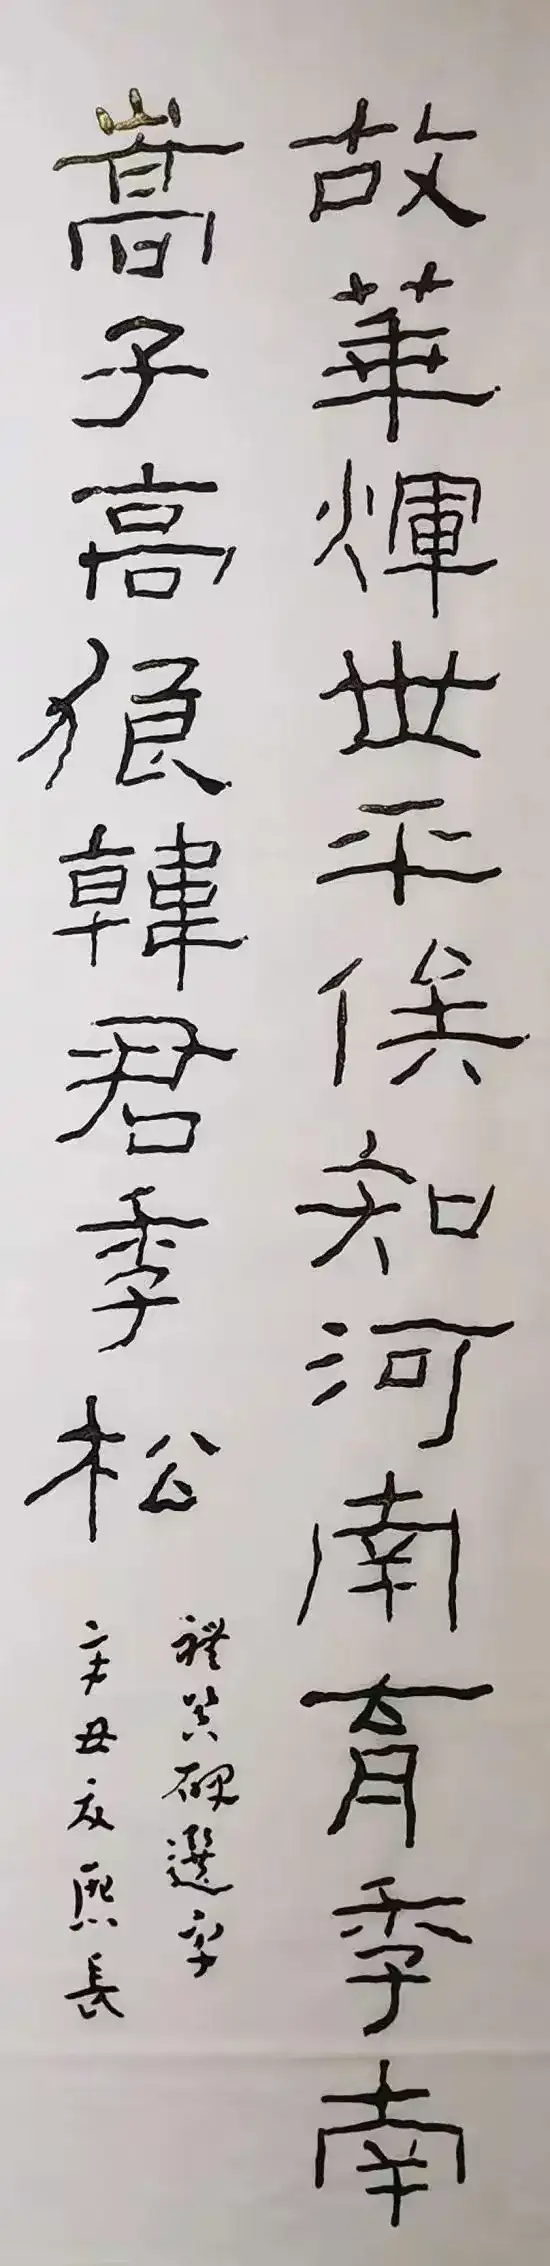 故華煇世平侯知河南育季南
嵩子高狼韓君季松
禮器碑選字
辛丑熙長